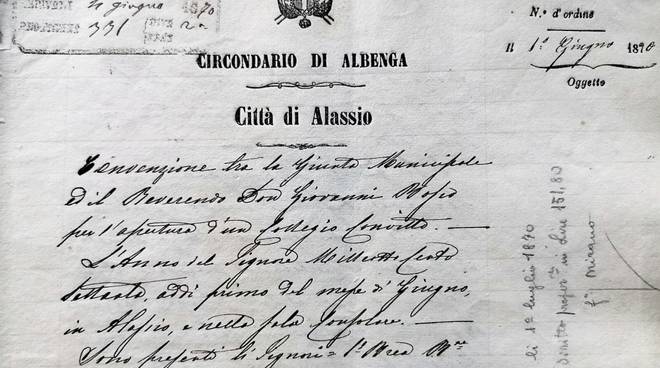 ARRIVOLI 4 giugno 1870
PROTOCOLLO 331
N.° d'ordine
Il 1° Giugno 1870
Oggetto
CIRCONDARIO DI ALBENGA
Città di Alassio
Convenzione tra la Giunta Municipale
ed il Reverendo Don Giovanni Bosco
per l'apertura d'un Collegio Convitto. —
L'Anno del Signore Milleotto Cento
Settanta, addì primo del mese di Giugno,
in Alassio, e nella sala Consolare. —
Sono presenti li Signori = 1° Brea
lì 1° luglio 1870
Diritto propor.le in Lire 151,80